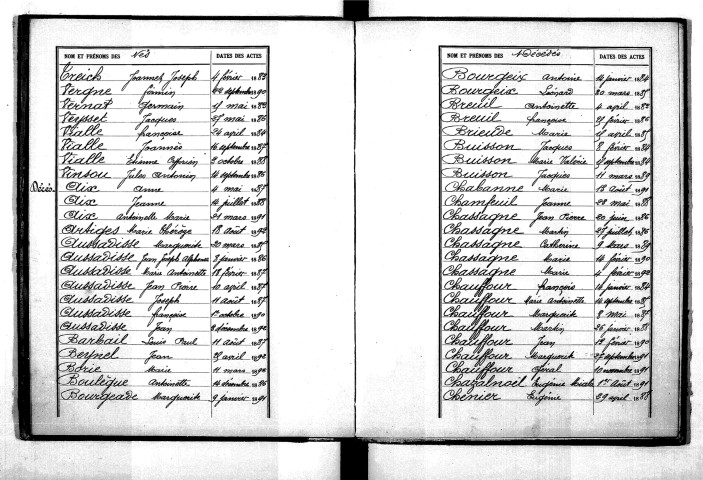 NOM ET PRÉNOMS DES Nés DATES DES ACTES
Treich Joannet Joseph 4 février 1883
Vergne Firmin septembre 1890
Vernat Germain 17 mai 1883
Veysset Jacques 27 mai 1886
Vialle françoise 24 avril 1884
Vialle Joannès 16 septembre 1887
Vialle Etienne Cyprien 2 octobre 1888
Vinsou Jules Antonin 14 septembre 1886
Décès Aix Anne 4 mai 1887
Aix Jeanne 14 juillet 1888
Aix Antoinette Marie 21 mars 1891
Artiges Marie Thérèse 18 août 1892
Aussadisse Marguerite 20 mars 1885
Aussadisse Jean Joseph Alphonse 3 janvier 1886
Aussadisse Marie Antoinette 18 février 1887
Aussadisse Jean Pierre 10 avril 1887
Aussadisse Joseph 11 août 1887
Aussadisse françoise 1er octobre 1890
Aussadisse Jean 8 décembre 1892
Barbail Louis Paul 11 août 1887
Beynel Jean avril 1890
Borie Marie 11 mars 1890
Boulègue Antoinette 14 novembre 1886
Bourgeade Marguerite 9 janvier 1891
NOM ET PRÉNOMS DES Décédés DATES DES ACTES
Bourgeix Antoine 14 janvier 1884
Bourgeix Léonard 20 mars 1885
Breuil Antoinette 4 avril
Breuil françoise 21 février 1886
Brieude Marie avril 1885
Buisson Jacques 8 février 1884
Buisson Marie Valérie septembre 1884
Buisson Jacques 11 mars 1889
Chabanne Marie 13 août 1891
Chamfeuil Jeanne 28 mai 1888
Chassagne Jean Pierre 20 juin 1886
Chassagne Martin 27 juillet 1886
Chassagne Catherine 9 mars 1889
Chassagne Marie 14 février 1890
Chassagne Marie 4 février 1892
Chauffour françois 16 janvier 1884
Chauffour Marie Antoinette 14 septembre 1885
Chauffour Marguerite 8 mai 1885
Chauffour Martin 26 janvier 1888
Chauffour Jean 12 février 1890
Chauffour Marguerite 27 septembre 1891
Chauffour 10 novembre 1891
Chazalnoël Eugénie 1er août 1891
Chénier Eugénie 29 avril 1888